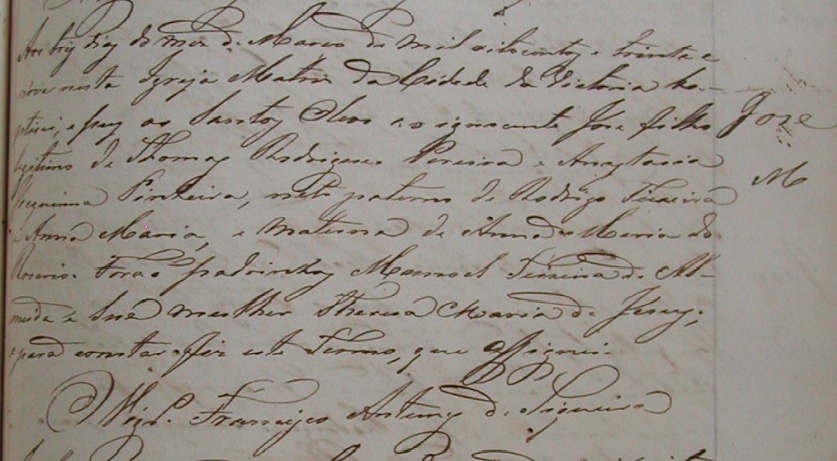 Aos tres dias do mez de Março de mil oitocentos e trinta e
nove nesta Igreja Matriz da Cidade da Victoria ba-
ptisei, e puz os Santos Oleos ao ignocente Jose filho
legitimo de Thomas Rodrigues Pereira e Anastacia
Pinheira, neto paterno de Rodrigo Teixeira
e Anna Maria, e materna de Anna Maria do
Rosario. Forão padrinhos Manoel Teixeira de Al-
meida e Sua mulher Theresa Maria de Jesus;
e para constar fiz este Termo, que assignei.
O Vigr.º Francisco Antunes de Siqueira
Jose
M